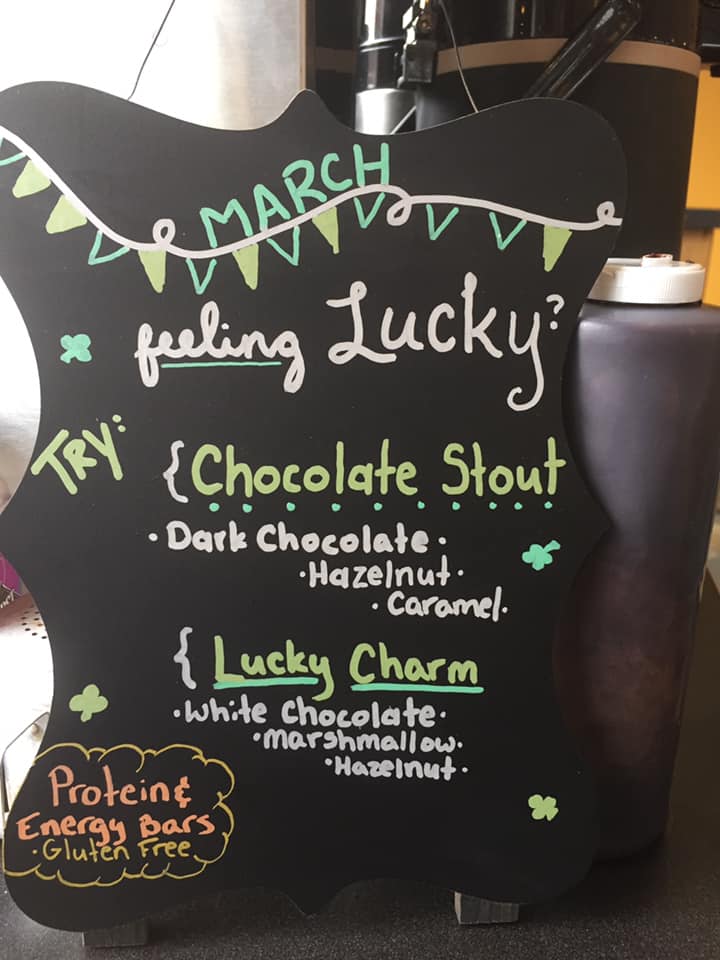 MARCH
feeling Lucky?
TRY:
{Chocolate Stout
·Dark Chocolate·
·Hazelnut·
·Caramel·
{Lucky Charm
·White Chocolate·
·marshmallow·
·Hazelnut·
Protein &
Energy Bars
·Gluten Free